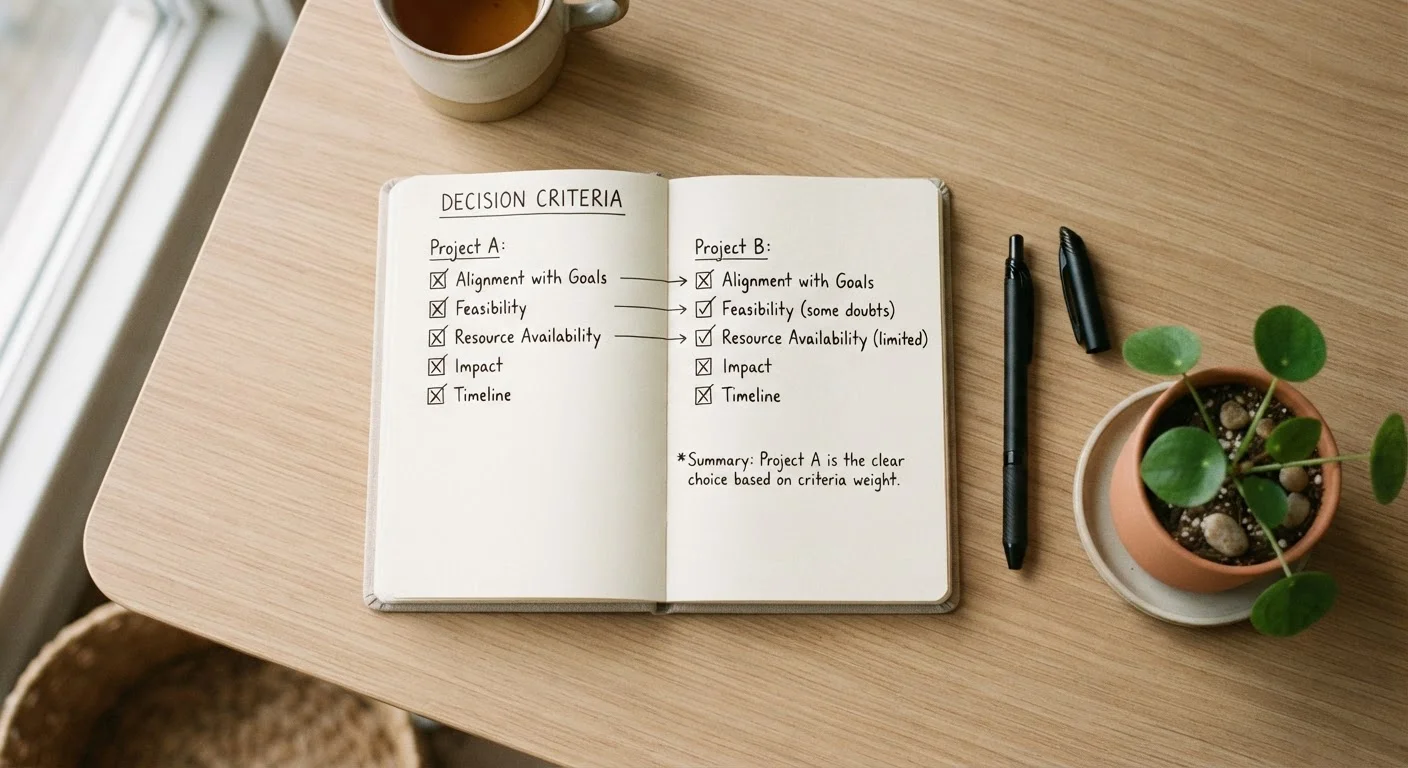 DECISION CRITERIA
Project A:
☒ Alignment with Goals
☒ Feasibility
☒ Resource Availability
☒ Impact
☒ Timeline
Project B:
☒ Alignment with Goals
☑ Feasibility (some doubts)
☑ Resource Availability (limited)
☒ Impact
☒ Timeline
*Summary: Project A is the clear
choice based on criteria weight.